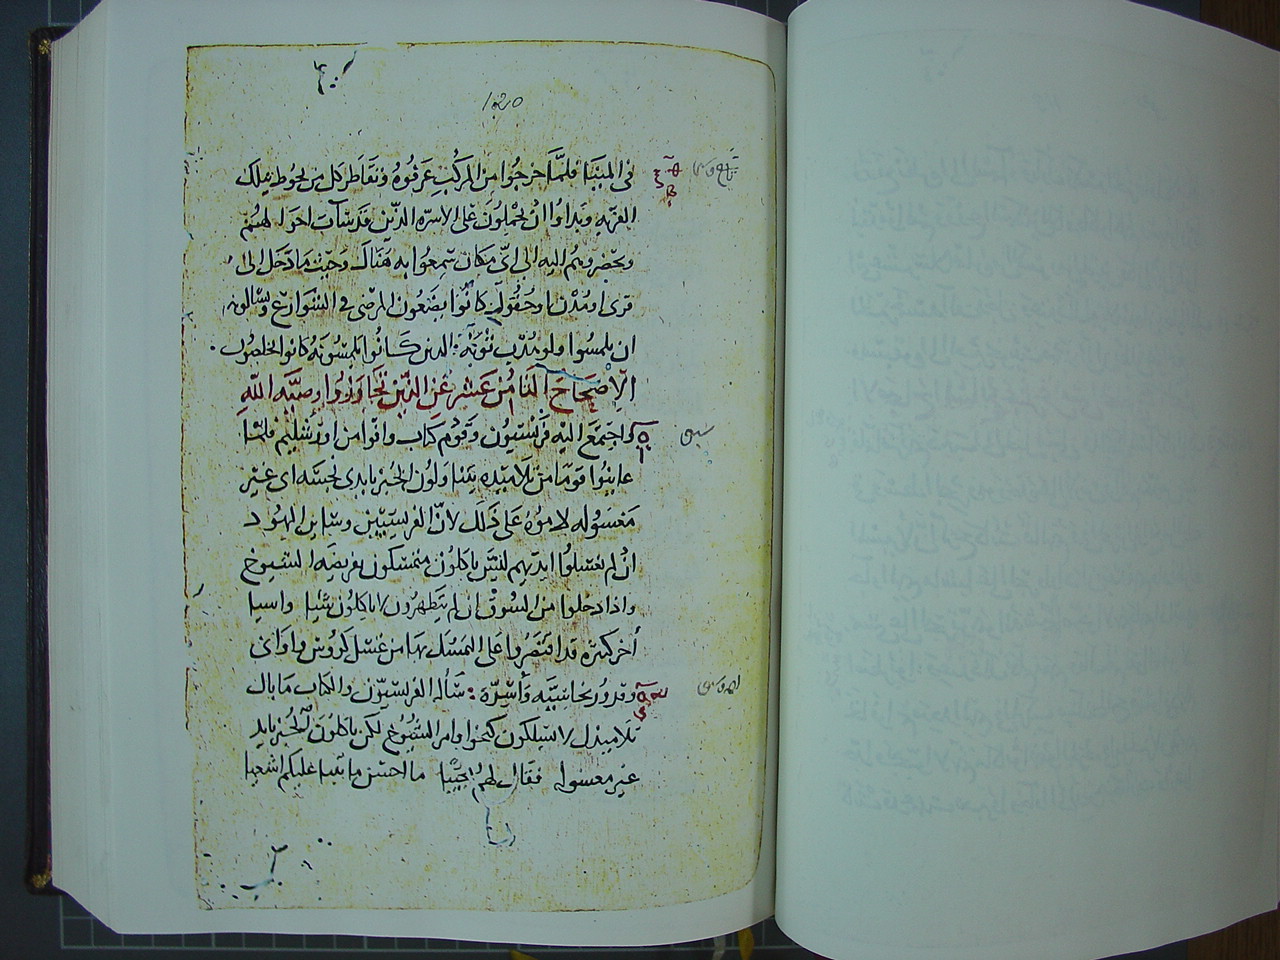 فى المينا فلما خرجوا من المركب عرفوه وتقاطر كل من بحوط تلك
القريه وبداوا ان يحملون على الاسره الذين قد سات احوالهم
ويحضروهم اليه الى اى مكان سمعوا به هناك وحيث ما دخل الى
قرى او مدن او حقول كانوا يضعون المرضى فى الشوارع ويسالونه
ان يلمسوا ولو ثوبه الذين كانوا يلمسونه كانوا يخلصون
الاصحاح الثامن عشر عن الذين تجاوزوا وصيه الله
واجتمع اليه فريسيون وقوم كتاب واتوا من اورشليم فلما
عاينوا قوما من تلاميذه يتناولون الخبز بايدى نجسه اى غير
مغسوله لاموه على ذلك لان الفريسيين وساير اليهود
ان لم يغسلوا ايديهم ليس ياكلون متمسكون بفريضه الشيوخ
واذا دخلوا من السوق ان لم يتطهرون لا ياكلون شيا واشيا
اخر كثيره قد اقتصروا على التمسك بها من غسل كووس واوانى
وقدور نحاسيه واسره سأله الفريسيون والكتاب ما بال
تلاميذك لا يسلكون كنحو اوامر الشيوخ لكن ياكلون الخبز بايد
غير مغسوله فقال لهم مجيبا ما احسن ما تنبا عليكم اشعيا